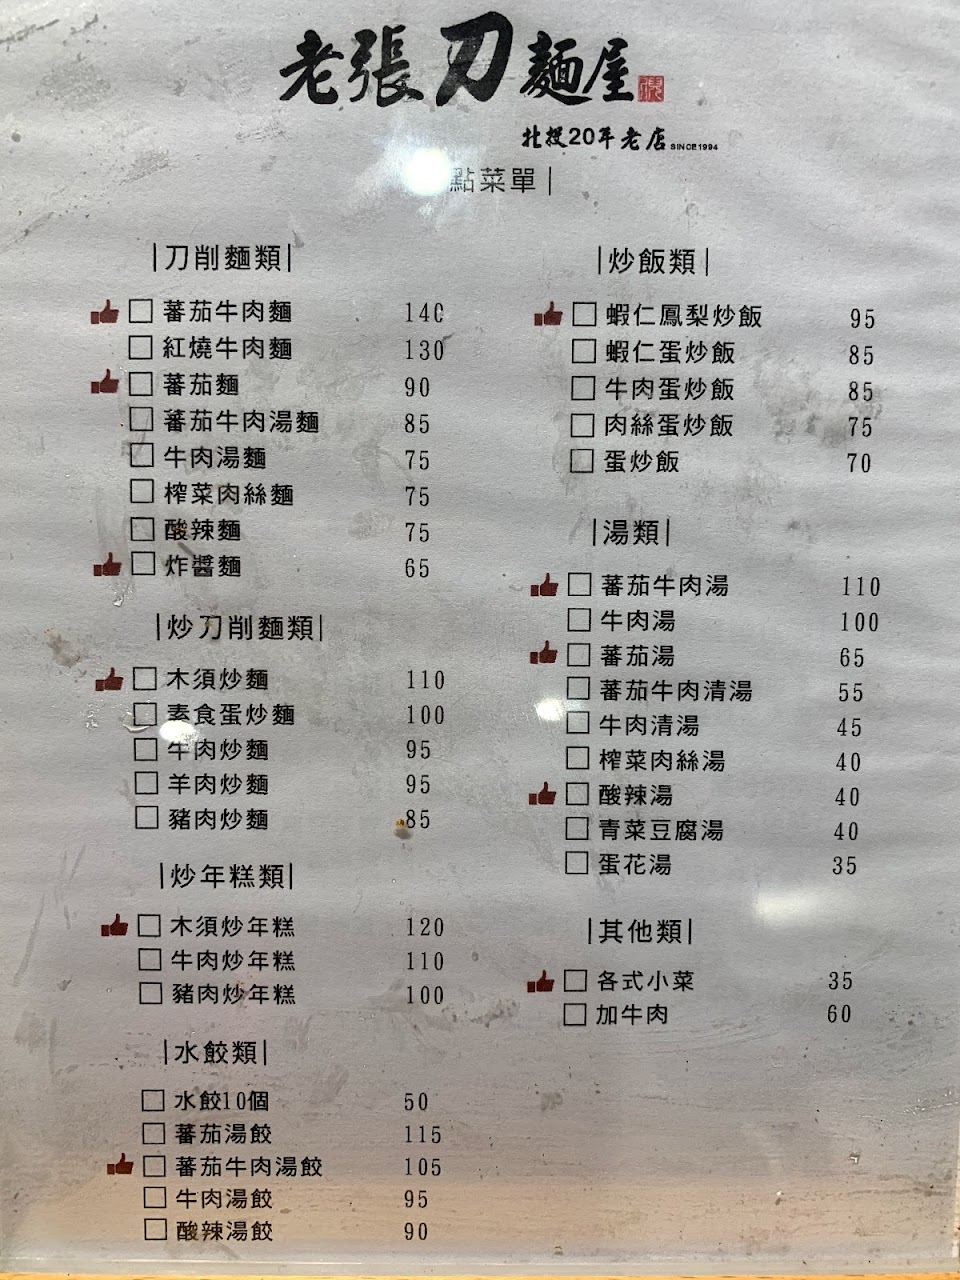 老張刀麵屋
北投20年老店 SINCE1994
點菜單|
|刀削麵類|
蕃茄牛肉麵 140
紅燒牛肉麵 130
蕃茄麵 90
蕃茄牛肉湯麵 85
牛肉湯麵 75
榨菜肉絲麵 75
酸辣麵 75
炸醬麵 65
|炒刀削麵類|
木須炒麵 110
素食蛋炒麵 100
牛肉炒麵 95
羊肉炒麵 95
豬肉炒麵 85
|炒年糕類|
木須炒年糕 120
牛肉炒年糕 110
豬肉炒年糕 100
|水餃類|
水餃10個 50
蕃茄湯餃 115
蕃茄牛肉湯餃 105
牛肉湯餃 95
酸辣湯餃 90
|炒飯類|
蝦仁鳳梨炒飯 95
蝦仁蛋炒飯 85
牛肉蛋炒飯 85
肉絲蛋炒飯 75
蛋炒飯 70
|湯類|
蕃茄牛肉湯 110
牛肉湯 100
蕃茄湯 65
蕃茄牛肉清湯 55
牛肉清湯 45
榨菜肉絲湯 40
酸辣湯 40
青菜豆腐湯 40
蛋花湯 35
|其他類|
各式小菜 35
加牛肉 60